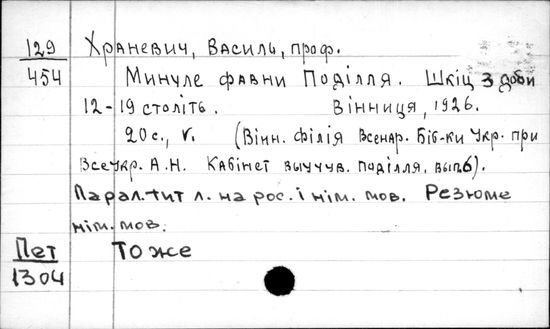 129 Храневич, Василь, проф.
454 Минуле фавни Поділля. Шкіц з доби
12-19 століть. Вінниця, 1926.
20с., V. (Вінн. філія Всенар. Біб-ки Укр. при
ВсеУкр. А.Н. Кабінет виучув. Поділля, вып.6).
Парал. тит л. на рос. і нім. мов. Резюме
нім. мов.
Пет То же
1304